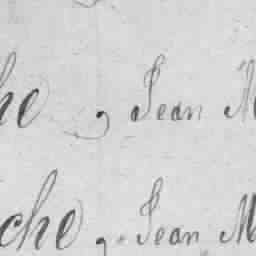 he, Jean M
che, Jean M